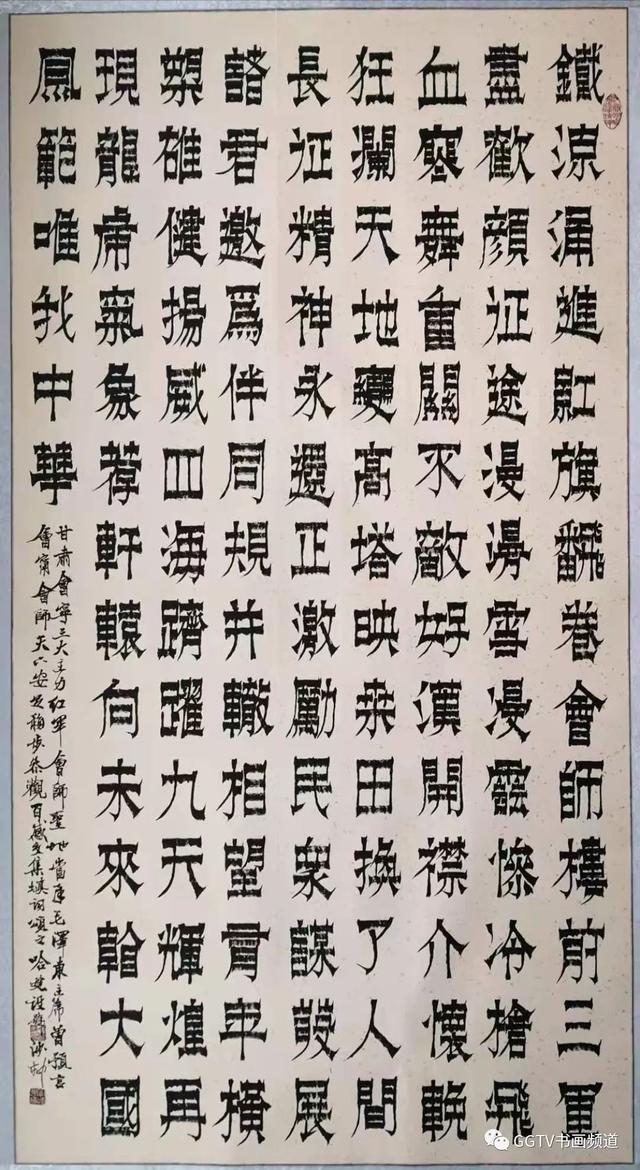 鐵流涌進紅旗飜卷會師樓前三軍
盡歡顔征途漫漫雪漫雲慘冷槍飛
血寒舞重關不敵好漢開襟介懷輓
狂瀾天地變高塔映桑田換了人間
長征精神永還正激勵民衆謀發展
諸君邀爲伴同規并轍相望貫平橫
槊雄健揚威四海躋躍九天輝煌再
現龍虎氣象荐軒轅向未來大國
風範唯我中華
甘肅會寧三大主力紅軍會師聖地當年毛澤東主席曾預言
會寧會師天下安步參觀百感交集填詞頌之哈建設
GGTV书画频道